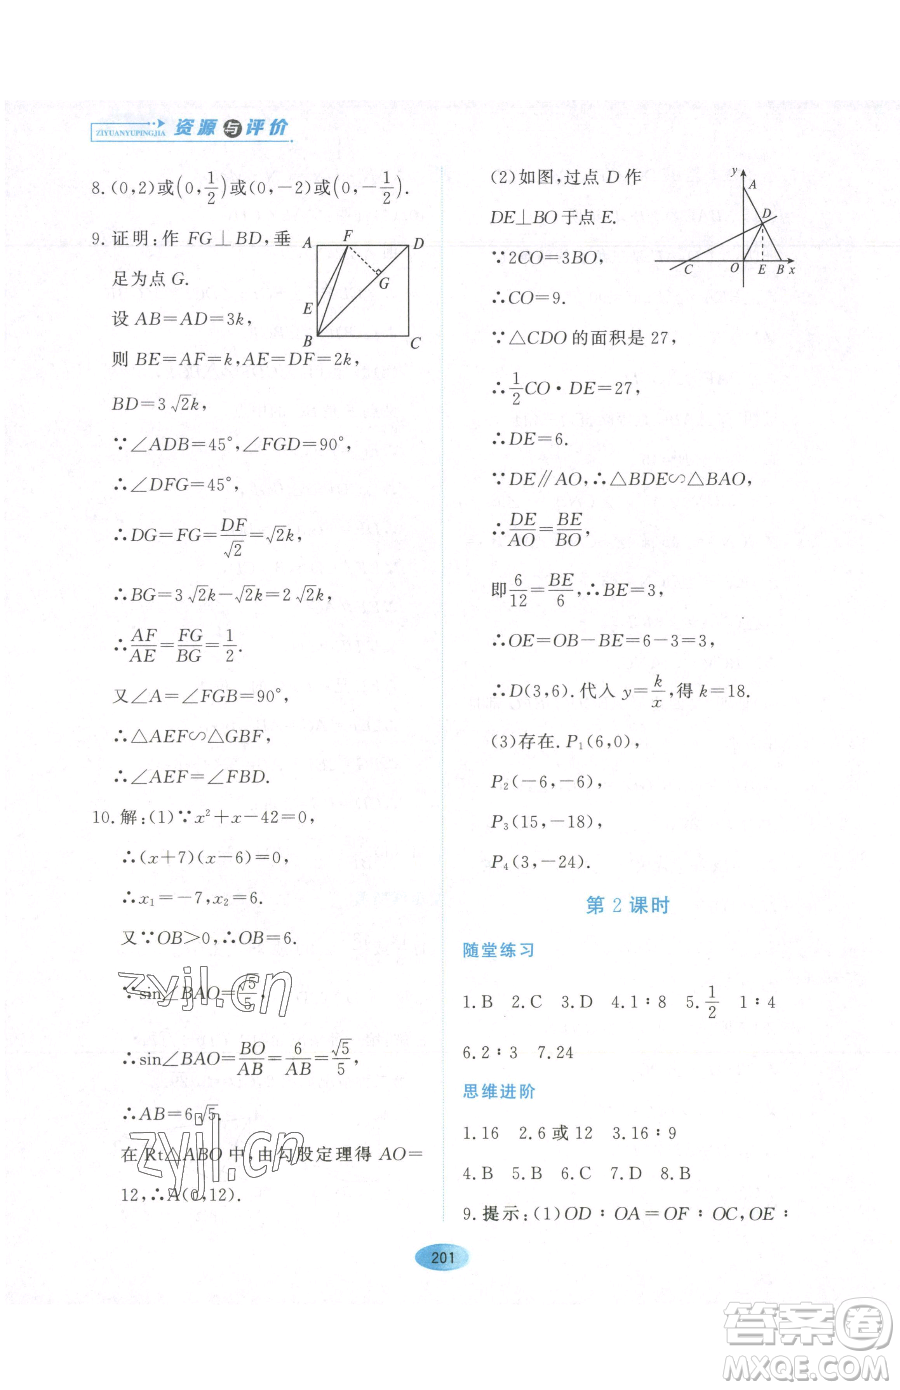 资源与评价
ZIYUANYUPINGJIA
8.(0,2)或(0,1/2)或(0,-2)或(0,-1/2).
9.证明:作 FG⊥BD,垂
足为点 G.
设 AB=AD=3k,
则 BE=AF=k,AE=DF=2k,
BD=3√2k,
∵∠ADB=45°,∠FGD=90°,
∴∠DFG=45°,
∴DG=FG=DF/√2=√2k,
∴BG=3√2k-√2k=2√2k,
∴AF/AE=FG/BG=1/2.
又∠A=∠FGB=90°,
∴△AEF∽△GBF,
∴∠AEF=∠FBD.
A F D
G
E
B C
10.解:(1)∵x²+x-42=0,
∴(x+7)(x-6)=0,
∴x₁=-7,x₂=6.
又∵OB>0,∴OB=6.
∵sin∠BAO=√5/5,
∴sin∠BAO=BO/AB=6/AB=√5/5,
∴AB=6√5.
在 Rt△ABO 中,由勾股定理得 AO=
12,∴A(0,12).
(2)如图,过点 D 作
DE⊥BO于点 E.
∵2CO=3BO,
∴CO=9.
∵△CDO 的面积是 27,
∴1/2CO·DE=27,
∴DE=6.
∵DE∥AO,∴△BDE∽△BAO,
∴DE/AO=BE/BO,
即6/12=BE/6,∴BE=3,
∴OE=OB-BE=6-3=3,
∴D(3,6).代入 y=k/x,得 k=18.
y
A
D
C O E B x
(3)存在.P₁(6,0),
P₂(-6,-6),
P₃(15,-18),
P₄(3,-24).
第 2 课时
随堂练习
1.B 2.C 3.D 4.1∶8 5.1/2 1∶4
6.2∶3 7.24
思维进阶
1.16 2.6 或 12 3.16∶9
4.B 5.B 6.C 7.D 8.D
9.提示:(1)OD∶OA=OF∶OC,OE∶
201
zyjl.cn
zyjl.cn
答案圈
MXQE.COM